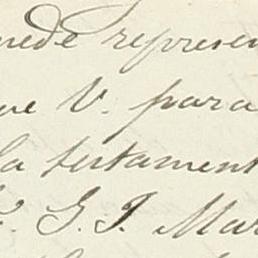 puede represen
que V. para
la testament
G. J. Mar